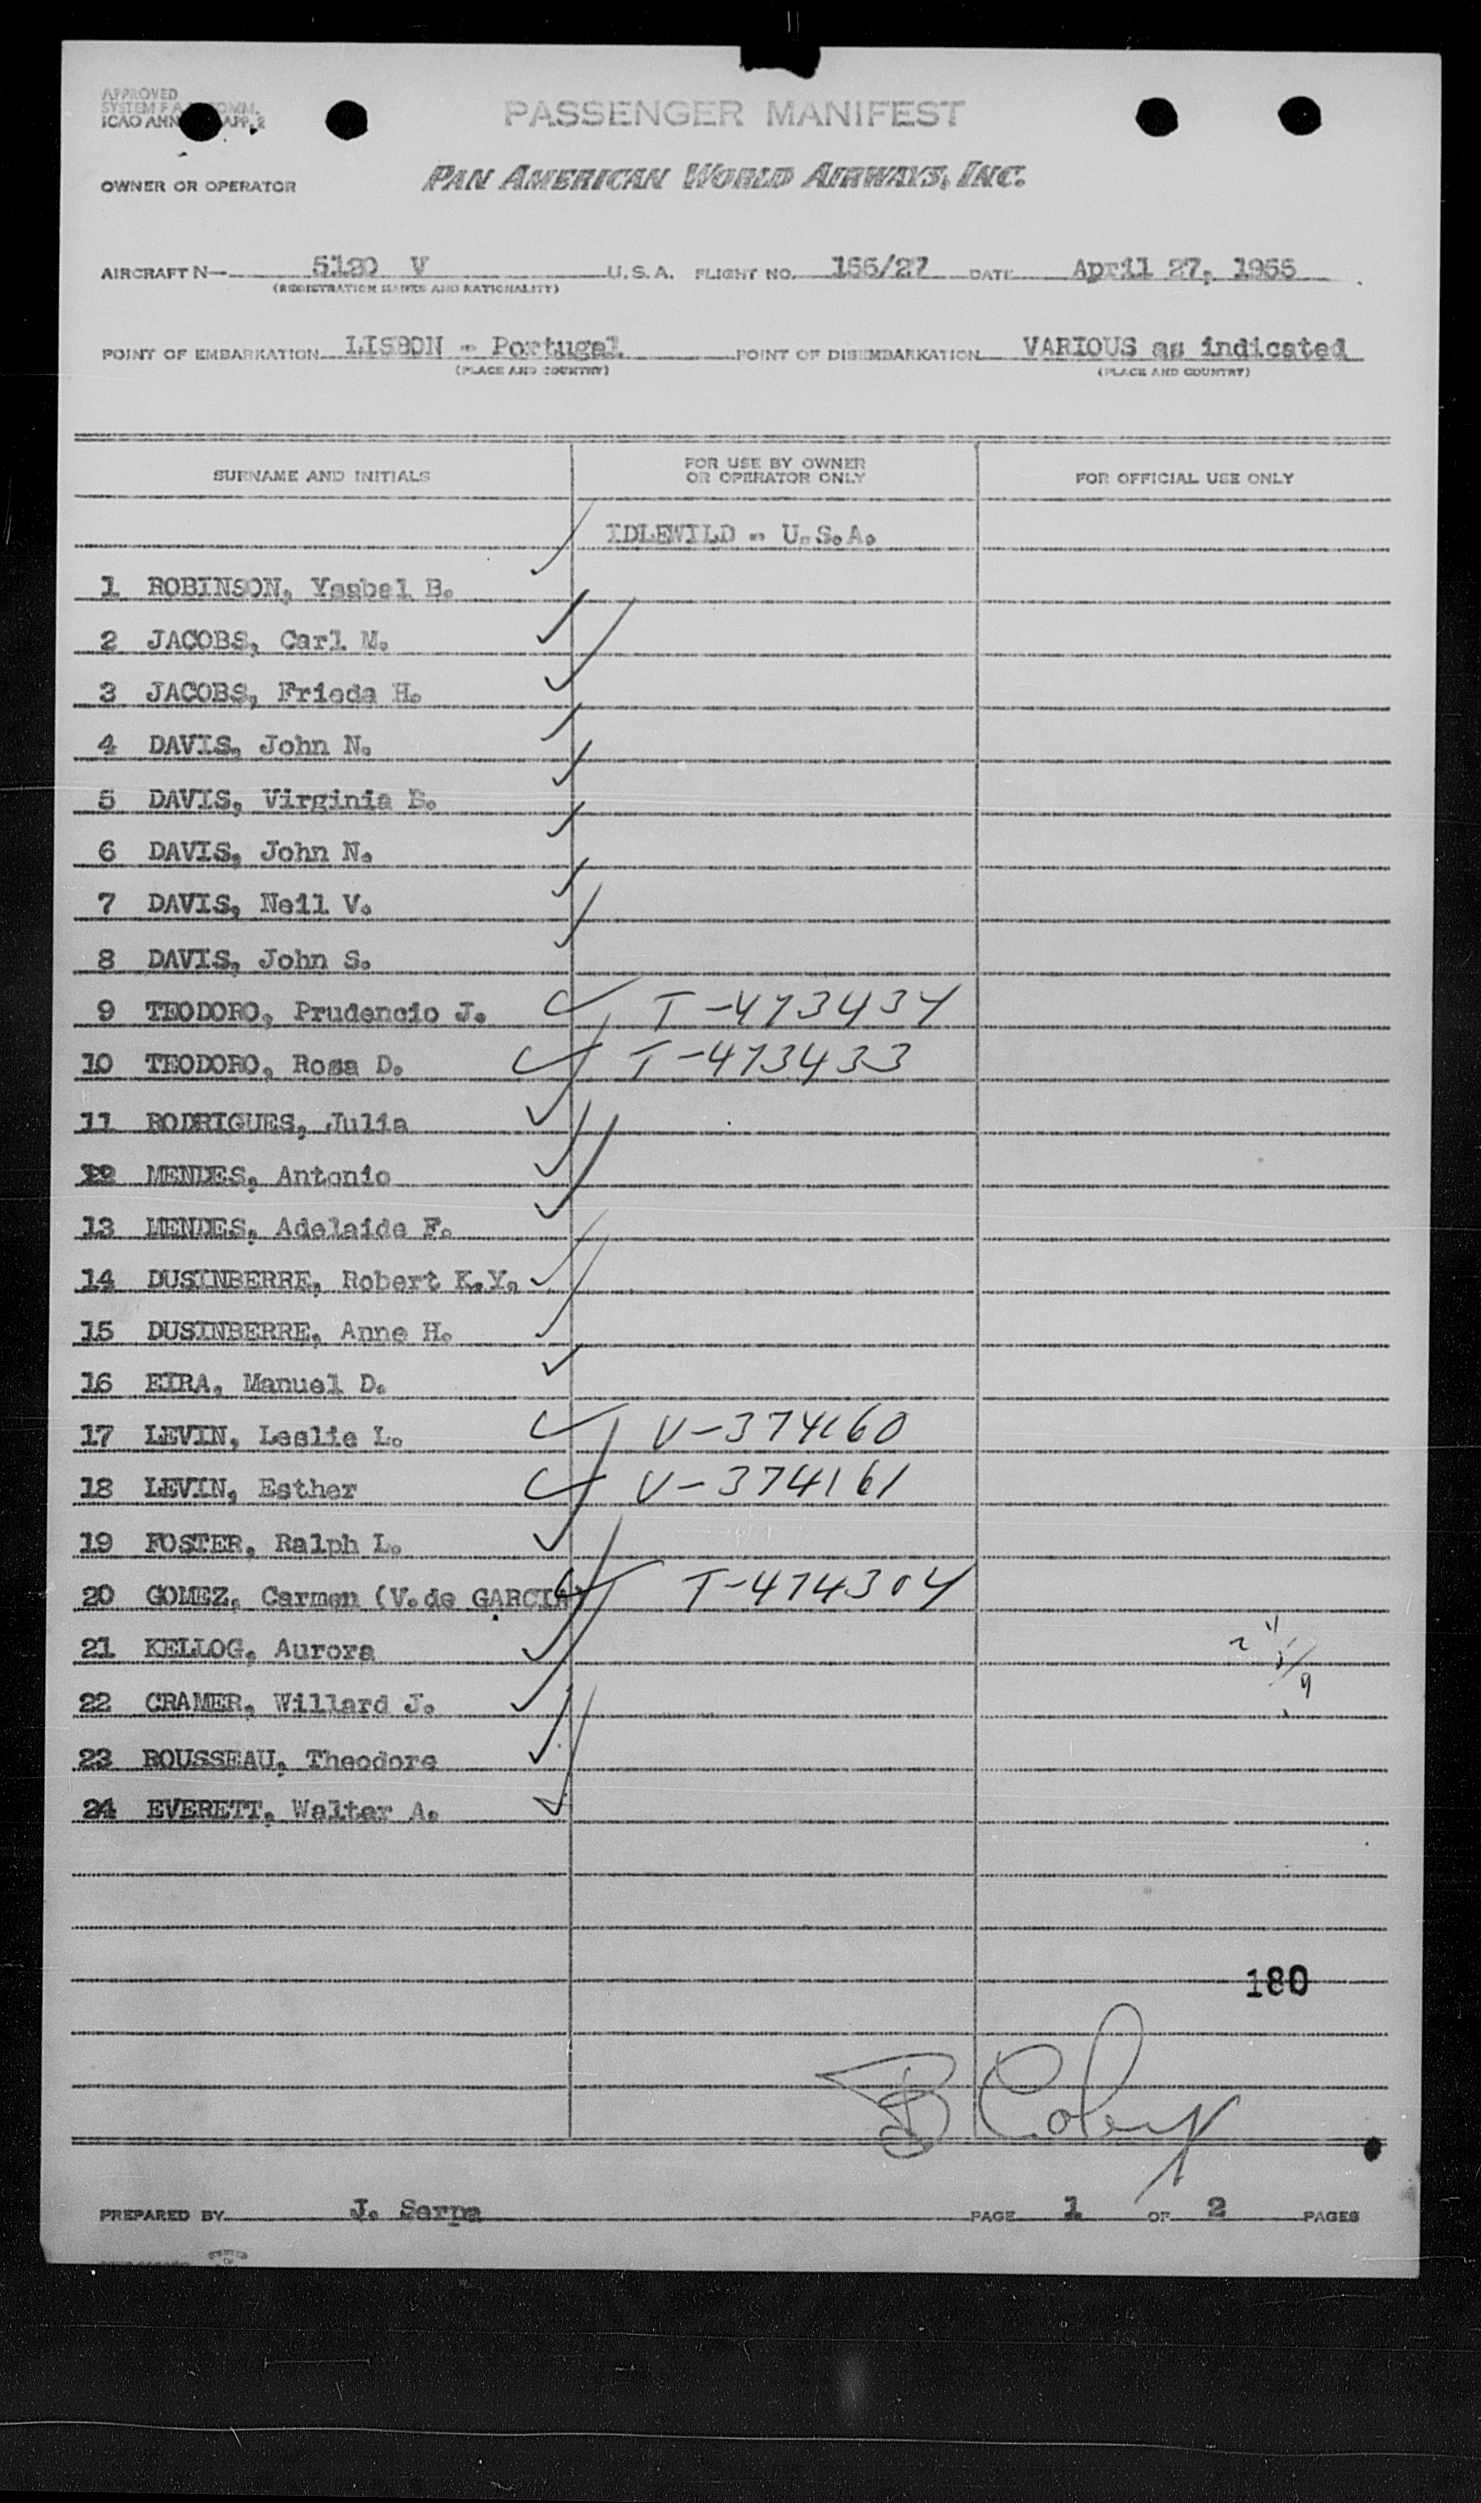 APPROVED
PASSENGER MANIFEST
OWNER OR OPERATOR PAN AMERICAN WORLD AIRWAYS, INC.
AIRCRAFT N- 5120 V U.S.A. FLIGHT NO. 156/27 DATE April 27, 1955
(REGISTRATION MARKS AND NATIONALITY)
POINT OF EMBARKATION LISBON - Portugal POINT OF DISEMBARKATION VARIOUS as indicated
(PLACE AND COUNTRY) (PLACE AND COUNTRY)
SURNAME AND INITIALS FOR USE BY OWNER OR OPERATOR ONLY FOR OFFICIAL USE ONLY
IDLEWILD - U.S.A.
1 ROBINSON, Ysabel B.
2 JACOBS, Carl M.
3 JACOBS, Frieda H.
4 DAVIS, John N.
5 DAVIS, Virginia B.
6 DAVIS, John N.
7 DAVIS, Neil V.
8 DAVIS, John S.
9 TEODORO, Prudencio J. T-473434
10 TEODORO, Rosa D. T-473433
11 RODRIGUES, Julia
12 MENDES, Antonio
13 MENDES, Adelaide F.
14 DUSINBERRE, Robert K.Y.
15 DUSINBERRE, Anne H.
16 EIRA, Manuel D.
17 LEVIN, Leslie L. V-374160
18 LEVIN, Esther V-374161
19 FOSTER, Ralph L.
20 GOMEZ, Carmen (V.de GARCIA) T-474304
21 KELLOG, Aurora
22 CRAMER, Willard J.
23 ROUSSEAU, Theodore
24 EVERETT, Walter A.
180
PREPARED BY J. Serpa PAGE 1 OF 2 PAGES